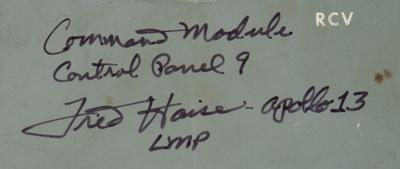 RCV
Command Module
Control Panel 9
Fred Haise - Apollo 13
LMP